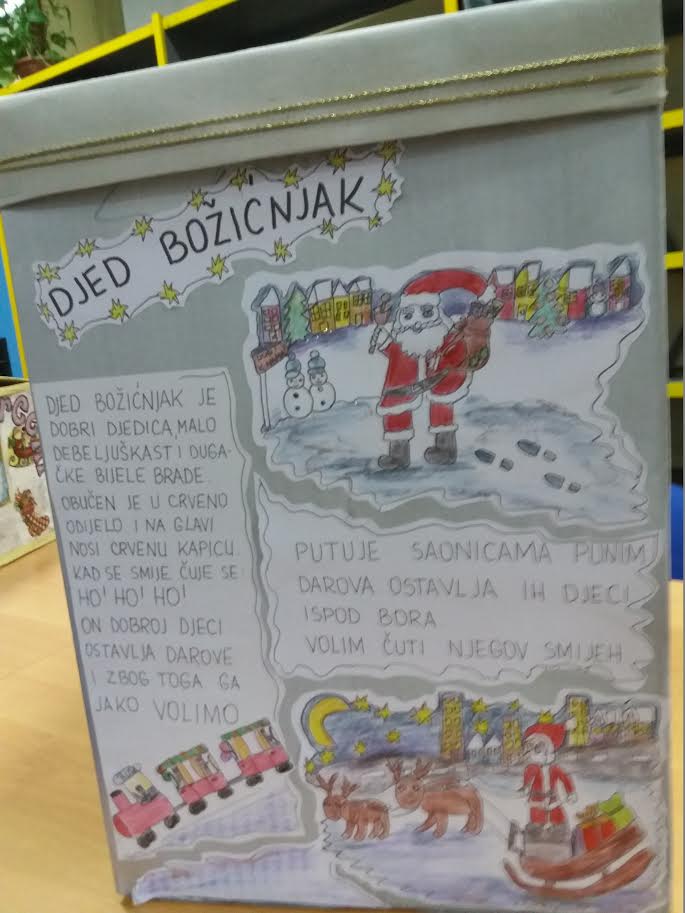 DJED BOŽIĆNJAK
DJED BOŽIĆNJAK JE
DOBRI DJEDICA, MALO
DEBELJUŠKAST I DUGA-
ČKE BIJELE BRADE.
OBUČEN JE U CRVENO
ODIJELO I NA GLAVI
NOSI CRVENU KAPICU.
KAD SE SMIJE ČUJE SE
HO! HO! HO!
ON DOBROJ DJECI
OSTAVLJA DAROVE
I ZBOG TOGA GA
JAKO VOLIMO
PUTUJE SAONICAMA PUNIM
DAROVA OSTAVLJA IH DJECI
ISPOD BORA
VOLIM ČUTI NJEGOV SMIJEH